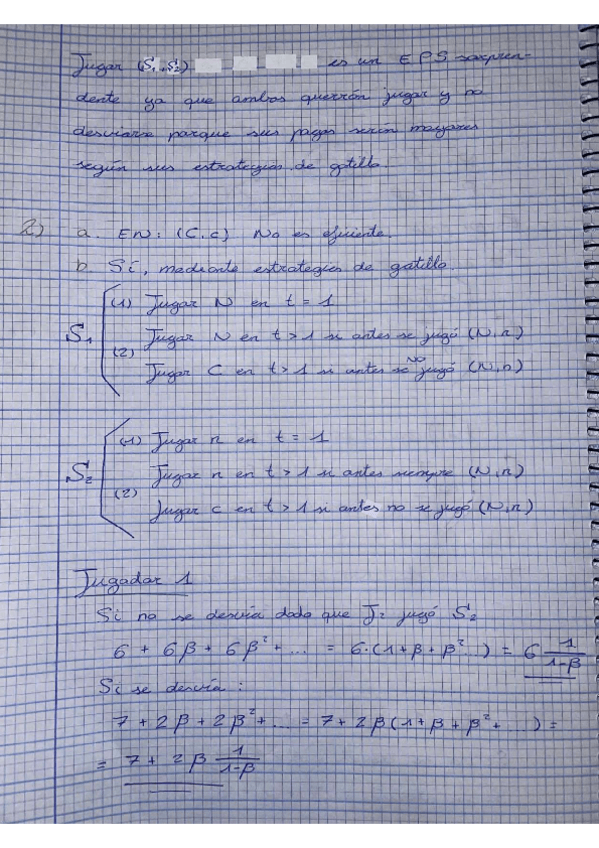 Jugar (S1, S2) es un EPS sorpren-
dente ya que ambos querrán jugar y no
desviarse porque sus pagos serín mayores
según sus estrategias de gatillo.
2) a. EN: (C, c) No es eficiente.
b. Sí, mediante estrategias de gatillo.
(1) Jugar N en t = 1
S1 (2) Jugar N en t > 1 si antes se jugó (N, n)
Jugar C en t > 1 si antes no se jugó (N, n)
(1) Jugar n en t = 1
S2 (2) Jugar n en t > 1 si antes siempre (N, n)
Jugar c en t > 1 si antes no se jugó (N, n)
Jugador 1
Si no se desvía dado que J2 jugó S2
6 + 6β + 6β² + ... = 6·(1+β+β²...) = 6 1/(1-β)
Si se desvía:
7 + 2β + 2β² + ... = 7 + 2β(1+β+β²+...) =
= 7 + 2β 1/(1-β)